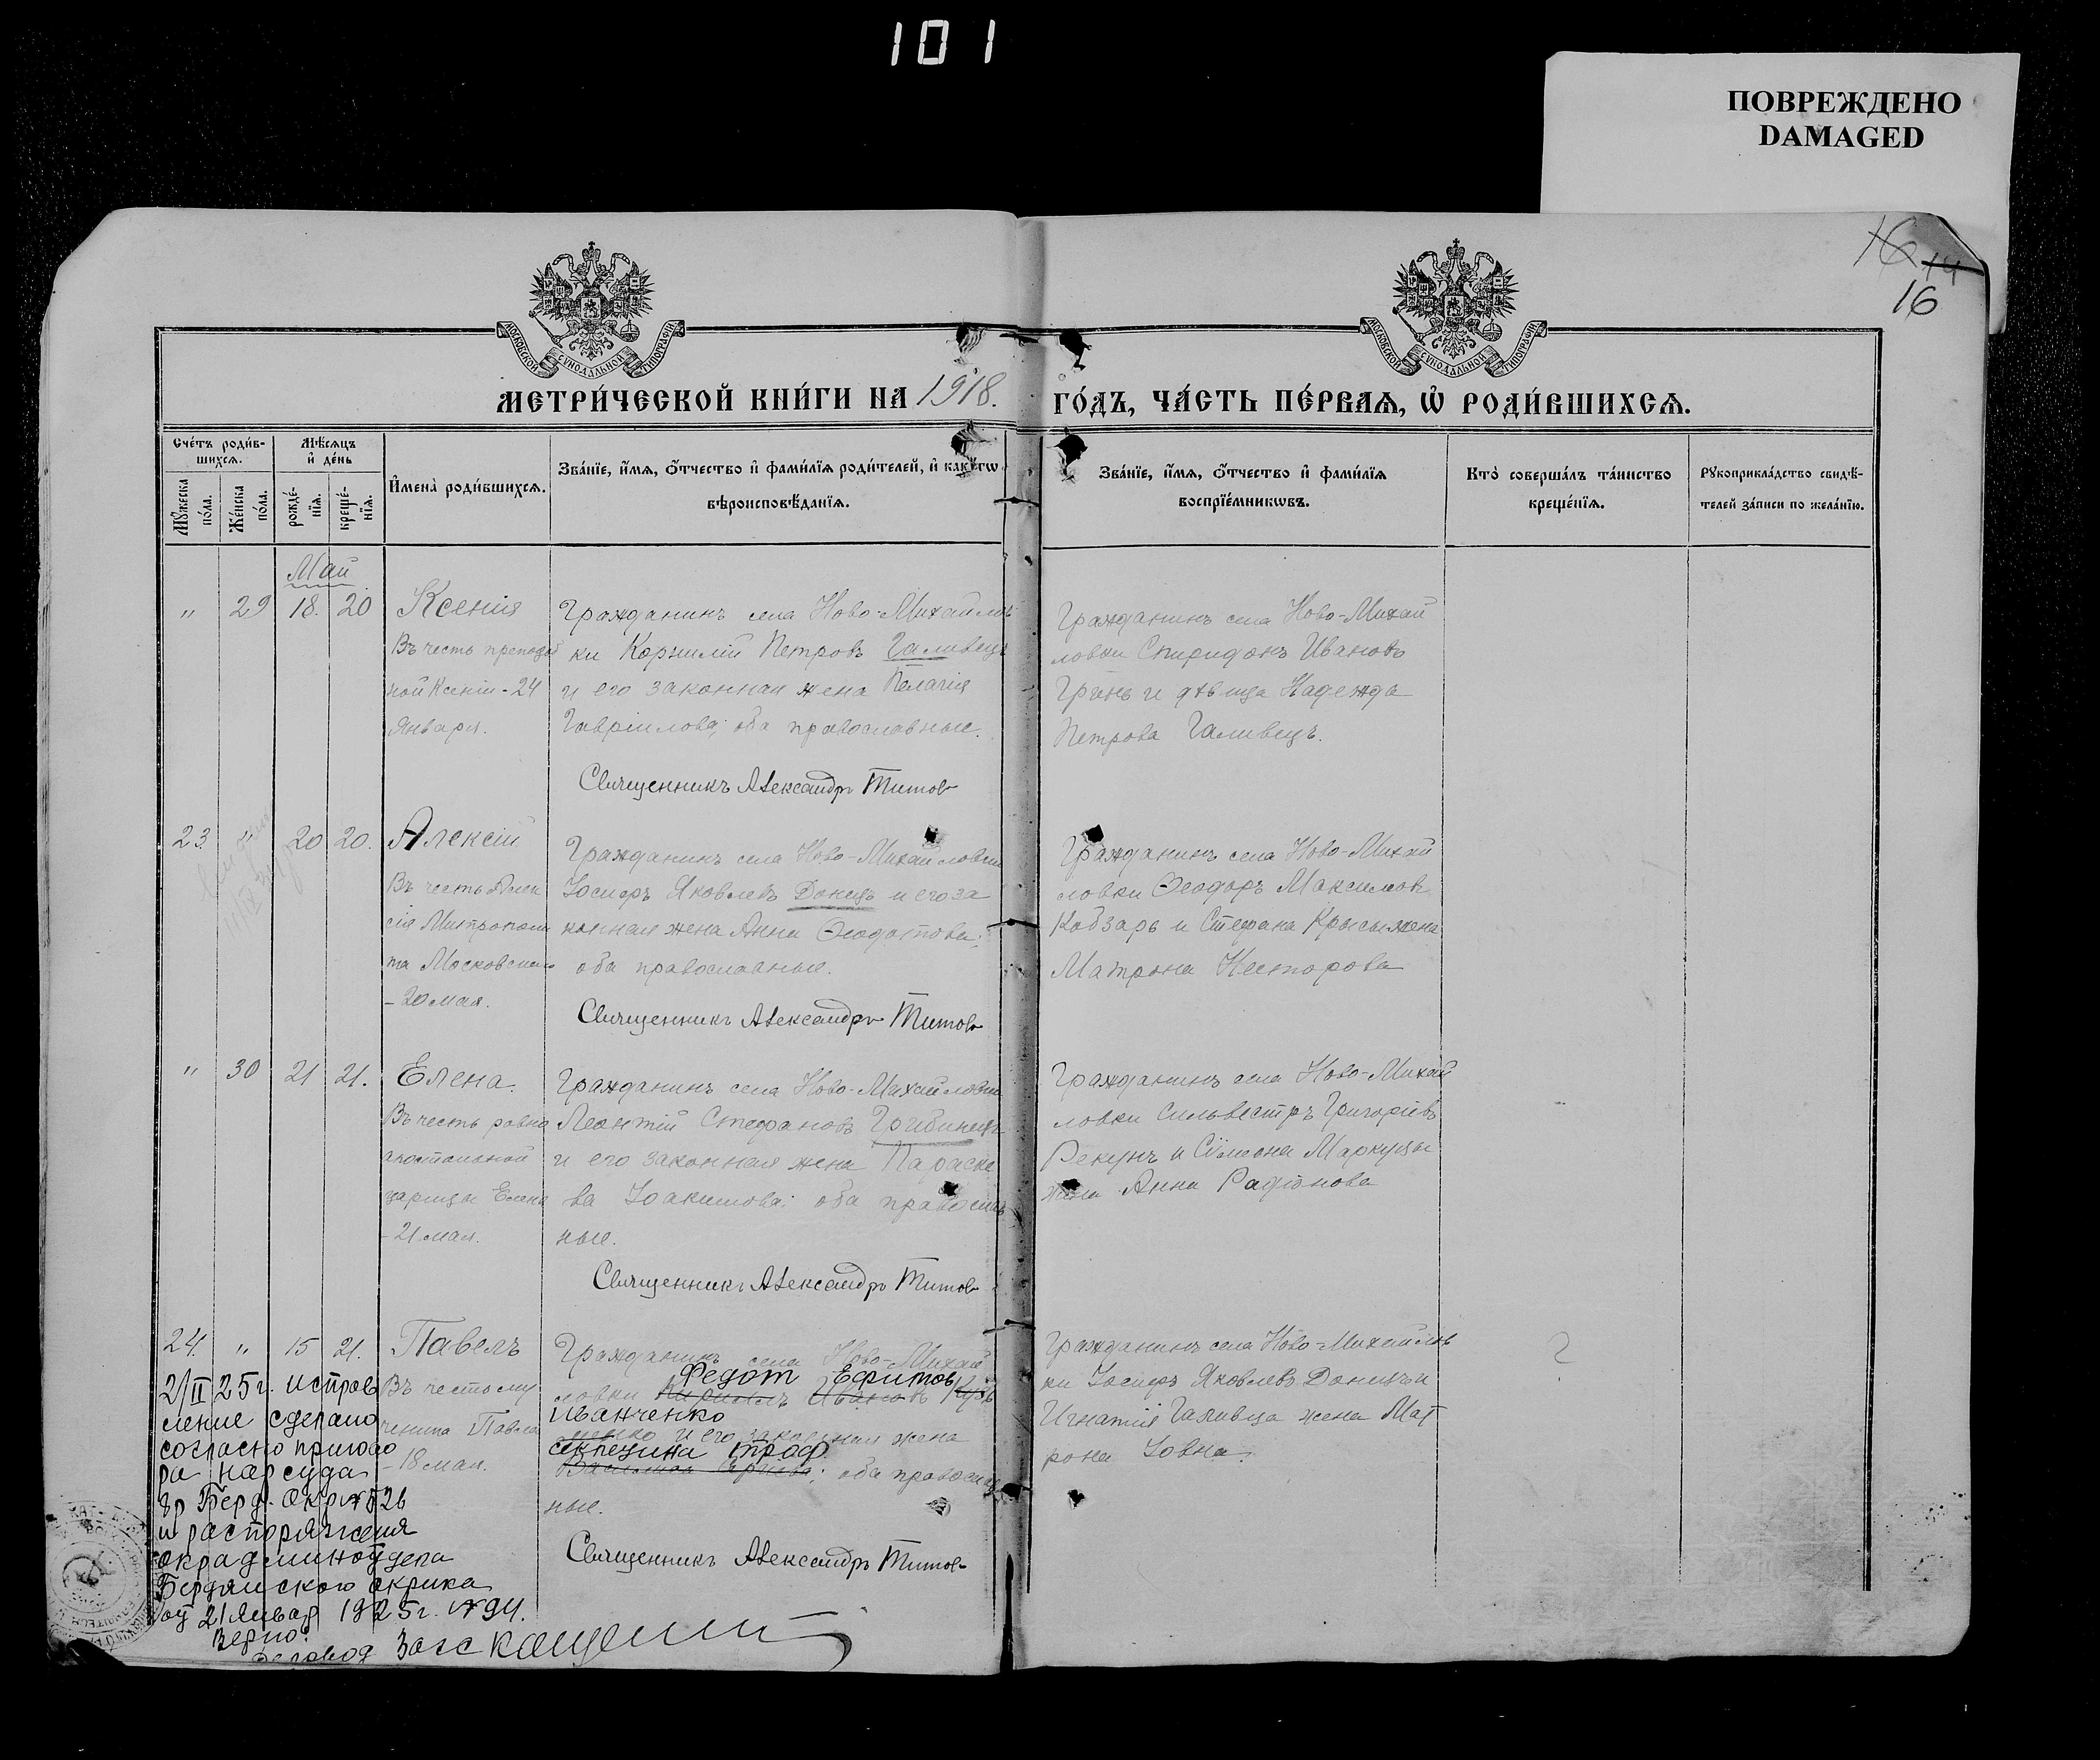 101
ПОВРЕЖДЕНО
DAMAGED
16
14
16
МОСКОВСКОЙ СѴНОДАЛЬНОЙ ТИПОГРАФІИ
МОСКОВСКОЙ СѴНОДАЛЬНОЙ ТИПОГРАФІИ
МЕТРИ́ЧЕСКОЙ КНИ́ГИ НА 1918. ГО́ДЪ, ЧА́СТЬ ПЕ́РВАѦ, Ѡ҆ РОДИ́ВШИХСѦ.
Сче́тъ роди́в-
шихсѧ.
Мѣ́сѧцъ
и҆ де́нь
Мꙋ́жеска
по́ла.
Же́нска
по́ла.
рожде́-
нїѧ.
креще́-
нїѧ.
И҆мена̀ роди́вшихсѧ.
Зва́нїе, и҆́мѧ, ѻ҆́тчество и҆ фами́лїѧ роди́телей, и҆ како́гѡ
вѣроисповѣ́данїѧ.
Зва́нїе, и҆́мѧ, ѻ҆́тчество и҆ фами́лїѧ
воспрїе́мникѡвъ.
Кто̀ соверша́лъ та́инство
креще́нїѧ.
Рꙋкоприкла́дство свидѣ́-
телей за́писи по жела́нїю.
Май
" 29 18. 20 Ксенія
Въ честь преподоб
ной Ксеніи - 24
Января.
Гражданинъ села Ново-Михайлов
ки Корнилій Петровъ Галивецъ
и его законная жена Пелагія
Гавріилова; оба православные.
Священникъ Александръ Титов
Гражданинъ села Ново-Михай
ловки Спиридонъ Ивановъ
Гринь и дѣвица Надежда
Петрова Галивецъ.
23 " 20 20. Алексій
Въ честь Алек
сія Митрополи
та Московскаго
- 20 мая.
Гражданинъ села Ново-Михайловки
Іосифъ Яковлевъ Донецъ и его за
конная жена Анна Ѳеодотова;
оба православные.
Священникъ Александръ Титов
Гражданинъ села Ново-Михай
ловки Ѳеодоръ Максимов
Кобзарь и Стефана Крысы жена
Матрона Несторова
" 30 21 21. Елена.
Въ честь равно
апостольной
царицы Елены
- 21 мая.
Гражданинъ села Ново-Михайловки
Леонтій Стефановъ Грибинецъ
и его законная жена Параске
ва Іоакимова; оба православ
ные.
Священникъ Александръ Титов
Гражданинъ села Ново-Михай
ловки Сильвестръ Григоріевъ
Рекунъ и Сѵмеона Маркуцы
жена Анна Радіонова
24. " 15 21. Павелъ
Въ честь му
ченика Павла
- 18 мая.
Гражданинъ села Ново-Михай
Федот Ефимов
ловки Ивановъ
Иванченко
и его законная жена
Троф.
оба православ
ные.
Священникъ Александръ Титов
Гражданинъ села Ново-Михайлов
ки Іосифъ Яковлевъ Донецъ и
Игнатія Галивца жена Мат
рона Іовна.
?
2/II 25 г. исправ
ление сделано
согласно пригово
ра нарсуда
гр Берд. Окр № 526
и распоряжения
окрадминотдела
Бердянского окрика
от 21 Январ 1925 г. № 94.
Верно:
Деловод Загс